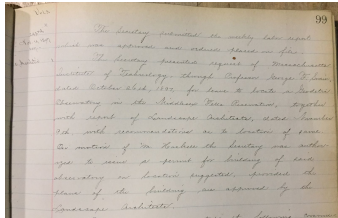 99
The Secretary submitted the weekly labor report
which was approved and ordered placed on file.
The Secretary presented request of Massachusetts
Institute of Technology, through Professor George F. Swain,
dated October 26th, 1898, for leave to locate a Geodetic
Observatory in the Middlesex Fells Reservation, together
with report of Landscape Architects, dated November
9th, with recommendations as to location of same
On motion of Mr. Haskell the Secretary was author-
ized to issue a permit for building of said
observatory on location suggested, provided the
plans of the building are approved by the
Landscape Architects.